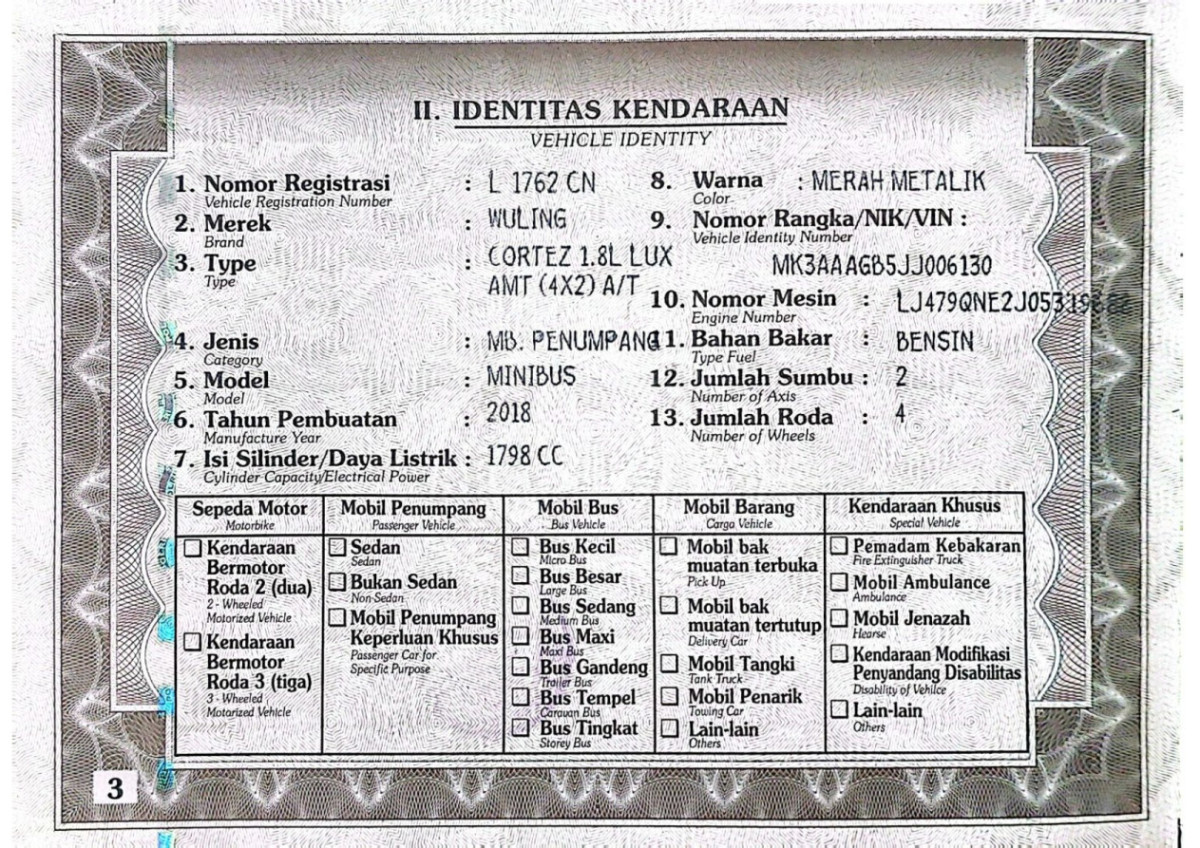 II. IDENTITAS KENDARAAN
VEHICLE IDENTITY
1. Nomor Registrasi : L 1762 CN
Vehicle Registration Number
2. Merek : WULING
Brand
3. Type : CORTEZ 1.8L LUX
Type
AMT (4X2) A/T
4. Jenis : MB. PENUMPANG
Category
5. Model : MINIBUS
Model
6. Tahun Pembuatan : 2018
Manufacture Year
7. Isi Silinder/Daya Listrik : 1798 CC
Cylinder Capacity/Electrical Power
8. Warna : MERAH METALIK
Color
9. Nomor Rangka/NIK/VIN :
Vehicle Identity Number
MK3AAAGB5JJ006130
10. Nomor Mesin :
Engine Number
11. Bahan Bakar : BENSIN
Type Fuel
12. Jumlah Sumbu : 2
Number of Axis
13. Jumlah Roda : 4
Number of Wheels
Sepeda Motor
Motorbike
Kendaraan
Bermotor
Roda 2 (dua)
2 - Wheeled
Motorized Vehicle
Kendaraan
Bermotor
Roda 3 (tiga)
3 - Wheeled
Motorized Vehicle
Mobil Penumpang
Passenger Vehicle
Sedan
Sedan
Bukan Sedan
Non-Sedan
Mobil Penumpang
Keperluan Khusus
Passenger Car for
Specific Purpose
Mobil Bus
Bus Vehicle
Bus Kecil
Micro Bus
Bus Besar
Large Bus
Bus Sedang
Medium Bus
Bus Maxi
Maxi Bus
Bus Gandeng
Trailer Bus
Bus Tempel
Caravan Bus
Bus Tingkat
Storey Bus
Mobil Barang
Cargo Vehicle
Mobil bak
muatan terbuka
Pick Up
Mobil bak
muatan tertutup
Delivery Car
Mobil Tangki
Tank Truck
Mobil Penarik
Towing Car
Lain-lain
Others
Kendaraan Khusus
Special Vehicle
Pemadam Kebakaran
Fire Extinguisher Truck
Mobil Ambulance
Ambulance
Mobil Jenazah
Hearse
Kendaraan Modifikasi
Penyandang Disabilitas
Disability of Vehilce
Lain-lain
Others
3